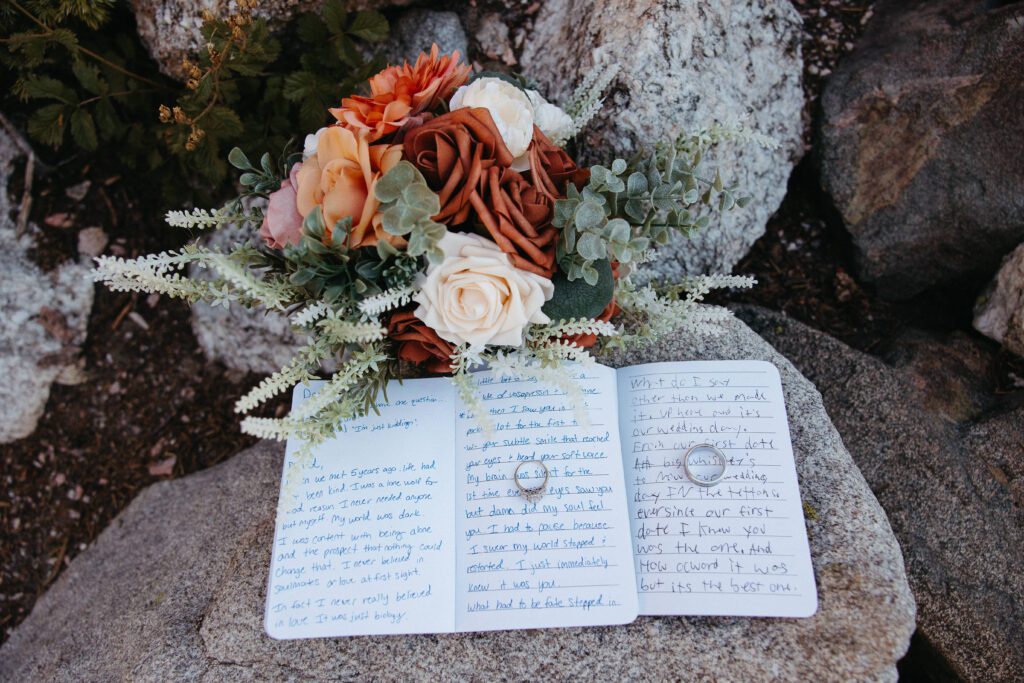 De
have one question..
"I'm just kidding!"
n we met 5 years ago. life had
been kind. I was a lone wolf for
reason. I never needed anyone
but myself. My world was dark.
I was content with being alone
and the prospect that nothing could
change that. I never believed in
soulmates or love at first sight.
In fact I never really believed
in love. It was just biology.
little bit of a
of vasopressin +
then I saw you in
lot for the first
your subtle smile that reached
your eyes + heard your soft voice
My brain was silent for the
1st time ever. eyes saw you
but damn did my soul feel
you I had to pause because
I swear my world stopped +
restarted. I just immediately
knew it was you.
What had to be fate stepped in
What do I say
other than we made
it. Up here and it's
our wedding day.
From our first date
At big Whiskey's
to now our wedding
day In the tetons
ever since our first
date I knew you
was the one. And
How acward it was
but its the best one.